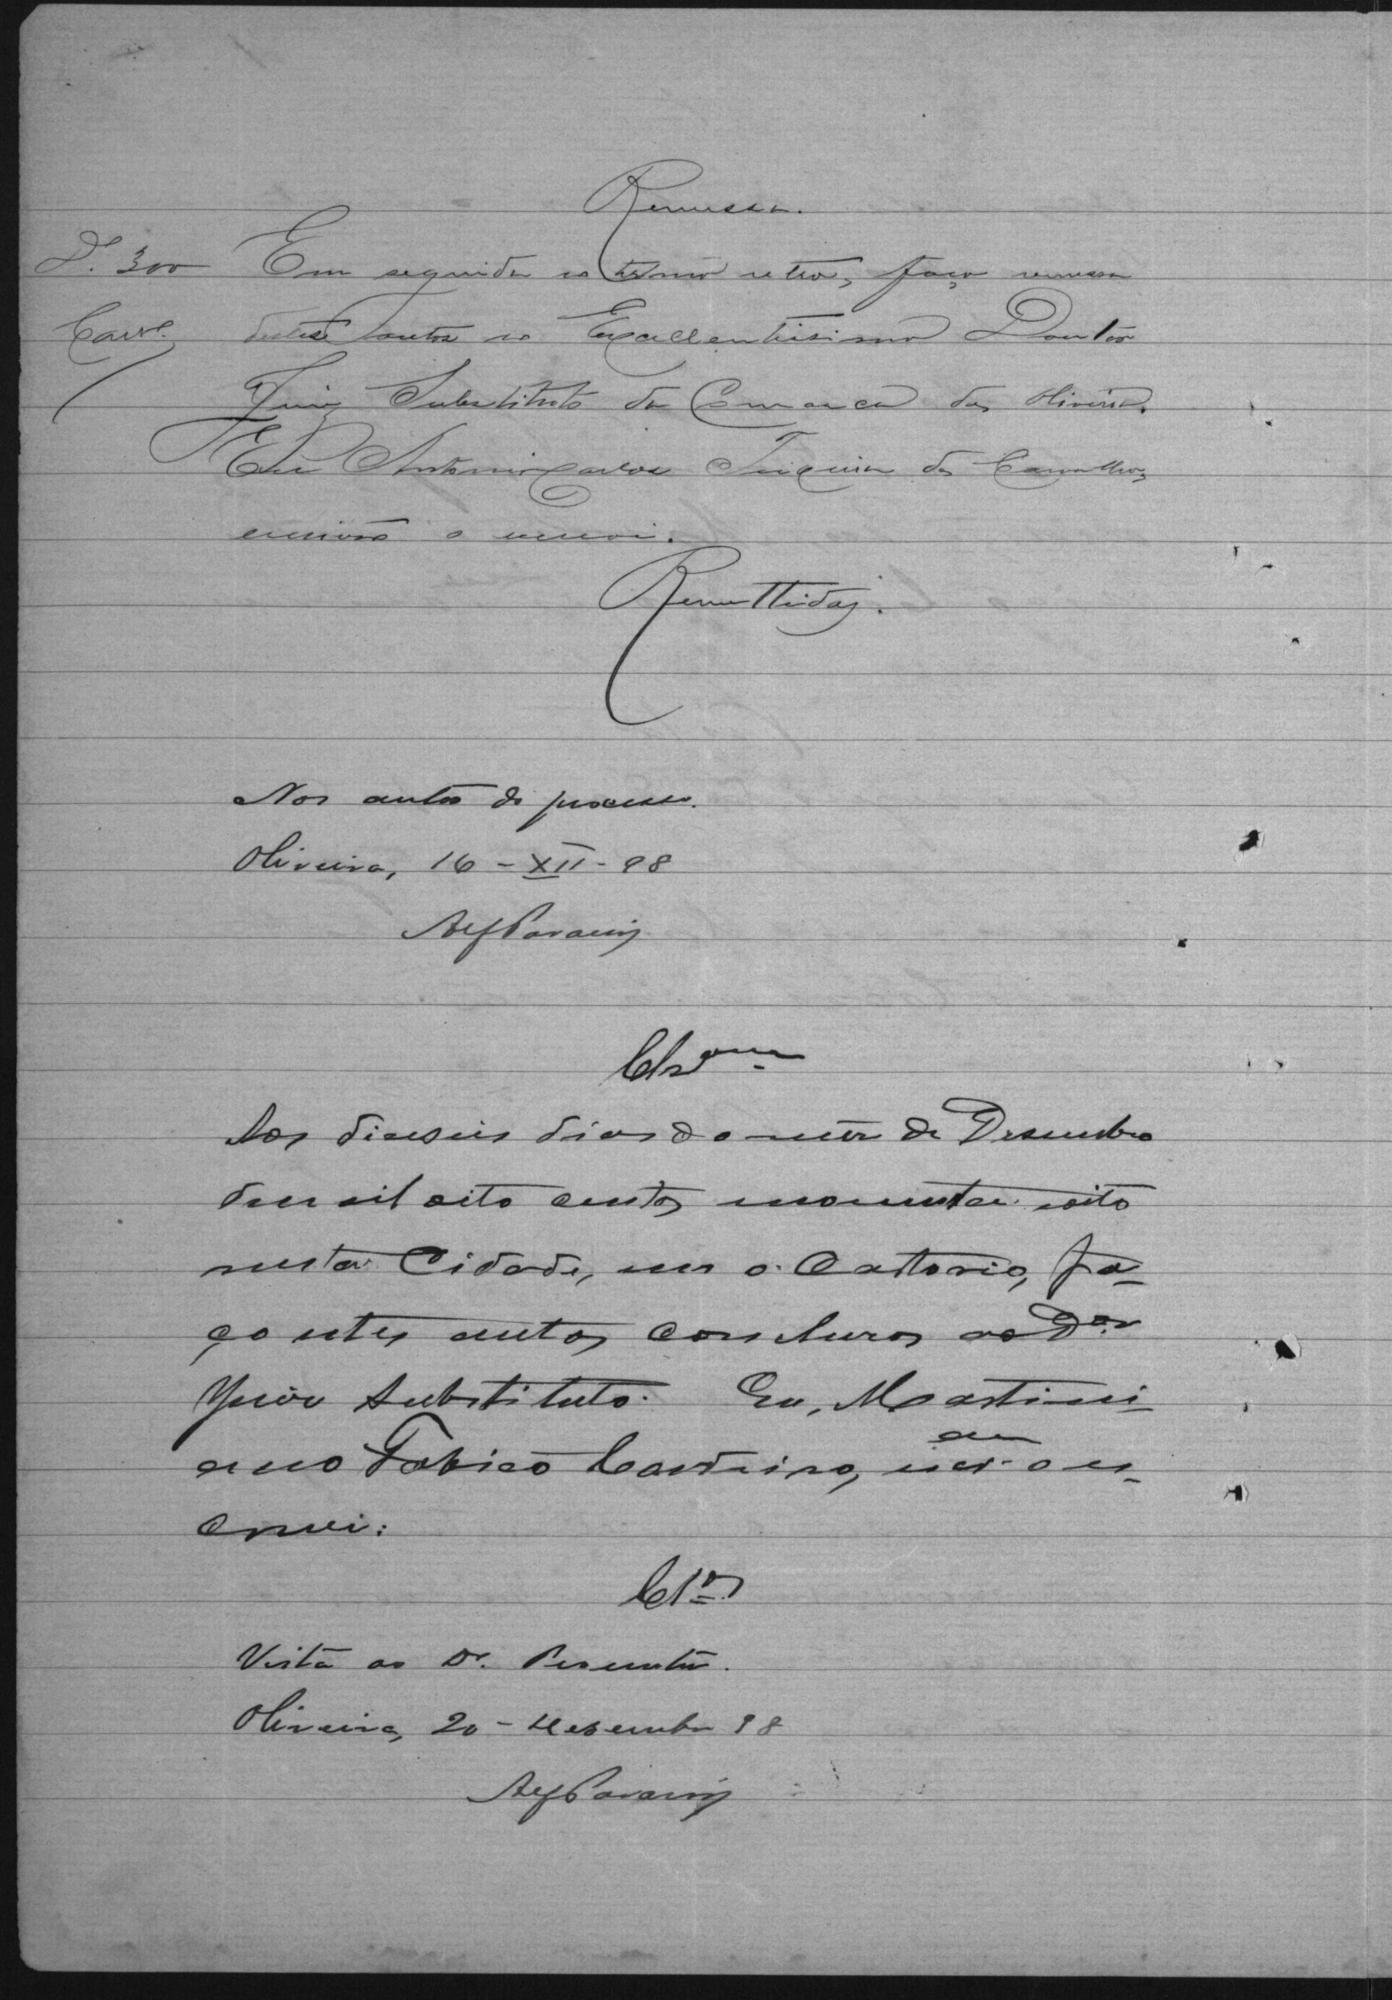 Remessa.
D. 300 Em seguida ao termo retro, faço remessa
Carv.º destes autos ao Excellentissimo Doutor
Juiz Substituto da Comarca de Oliveira.
Eu Antonio Carlos Teixeira de Carvalho,
escrivão o escrevi.
Remettidos.
Nos autos do processo.
Oliveira, 16-XII-98
Clsam
Aos dieseis dias do mez de Desembro
demil oito centos noventa e oito
nesta Cidade, em o Cartorio, fa-
ço estes autos conclusos ao Dor
Juiz Substituto. Eu, Martini-
ano Fabião Cordeiro, escram o es-
crevi:
Clos
Vista ao Dr. Promotor.
Oliveira, 20-Desembro 98